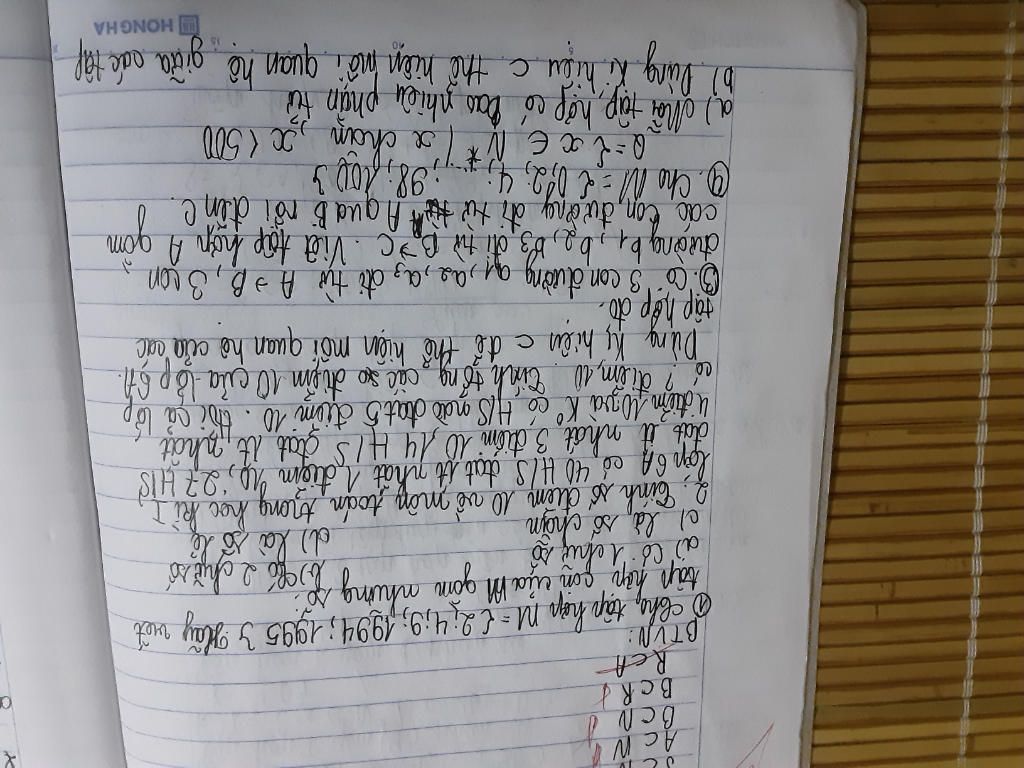 S C N
A C N
B C N
B C R
R C A
BTVN:
① Cho tập hợp M = { 2; 4; 9; 1994; 1995 } Hãy viết
tập hợp con của M gồm những số:
a) Có 1 chữ số b) Có 2 chữ số
c) là số chẵn d) là số lẻ
2, Tính số điểm 10 về môn toán trong học kì I
lớp 6A có 40 H/S đạt ít nhất 1 điểm 10, 27 H/S
đạt ít nhất 3 điểm 10, 14 H/S đạt ít nhất
4 điểm 10 và K⁰ có H/S nào đạt 5 điểm 10. Hỏi cả lớp
có ? điểm 10 Tính tổng các số điểm 10 của lớp 6A.
Dùng kí hiệu ⊂ để thể hiện mối quan hệ của các
tập hợp đó.
③. Có 3 con đường a₁, a₂, a₃ đi từ A → B, 3 con
đường b₁, b₂, b₃ đi từ B → C. Viết tập hợp A gồm
các con đường đi từ A qua B rồi đến C.
④. Cho M = { 0; 2; 4; ...; 98; 100 }
Q = { x ∈ N* / x chẵn, x < 500
a) Mỗi tập hợp có bao nhiêu phần tử
b) Dùng kí hiệu ⊂ thể hiện mối quan hệ giữa các tập
HONG HA